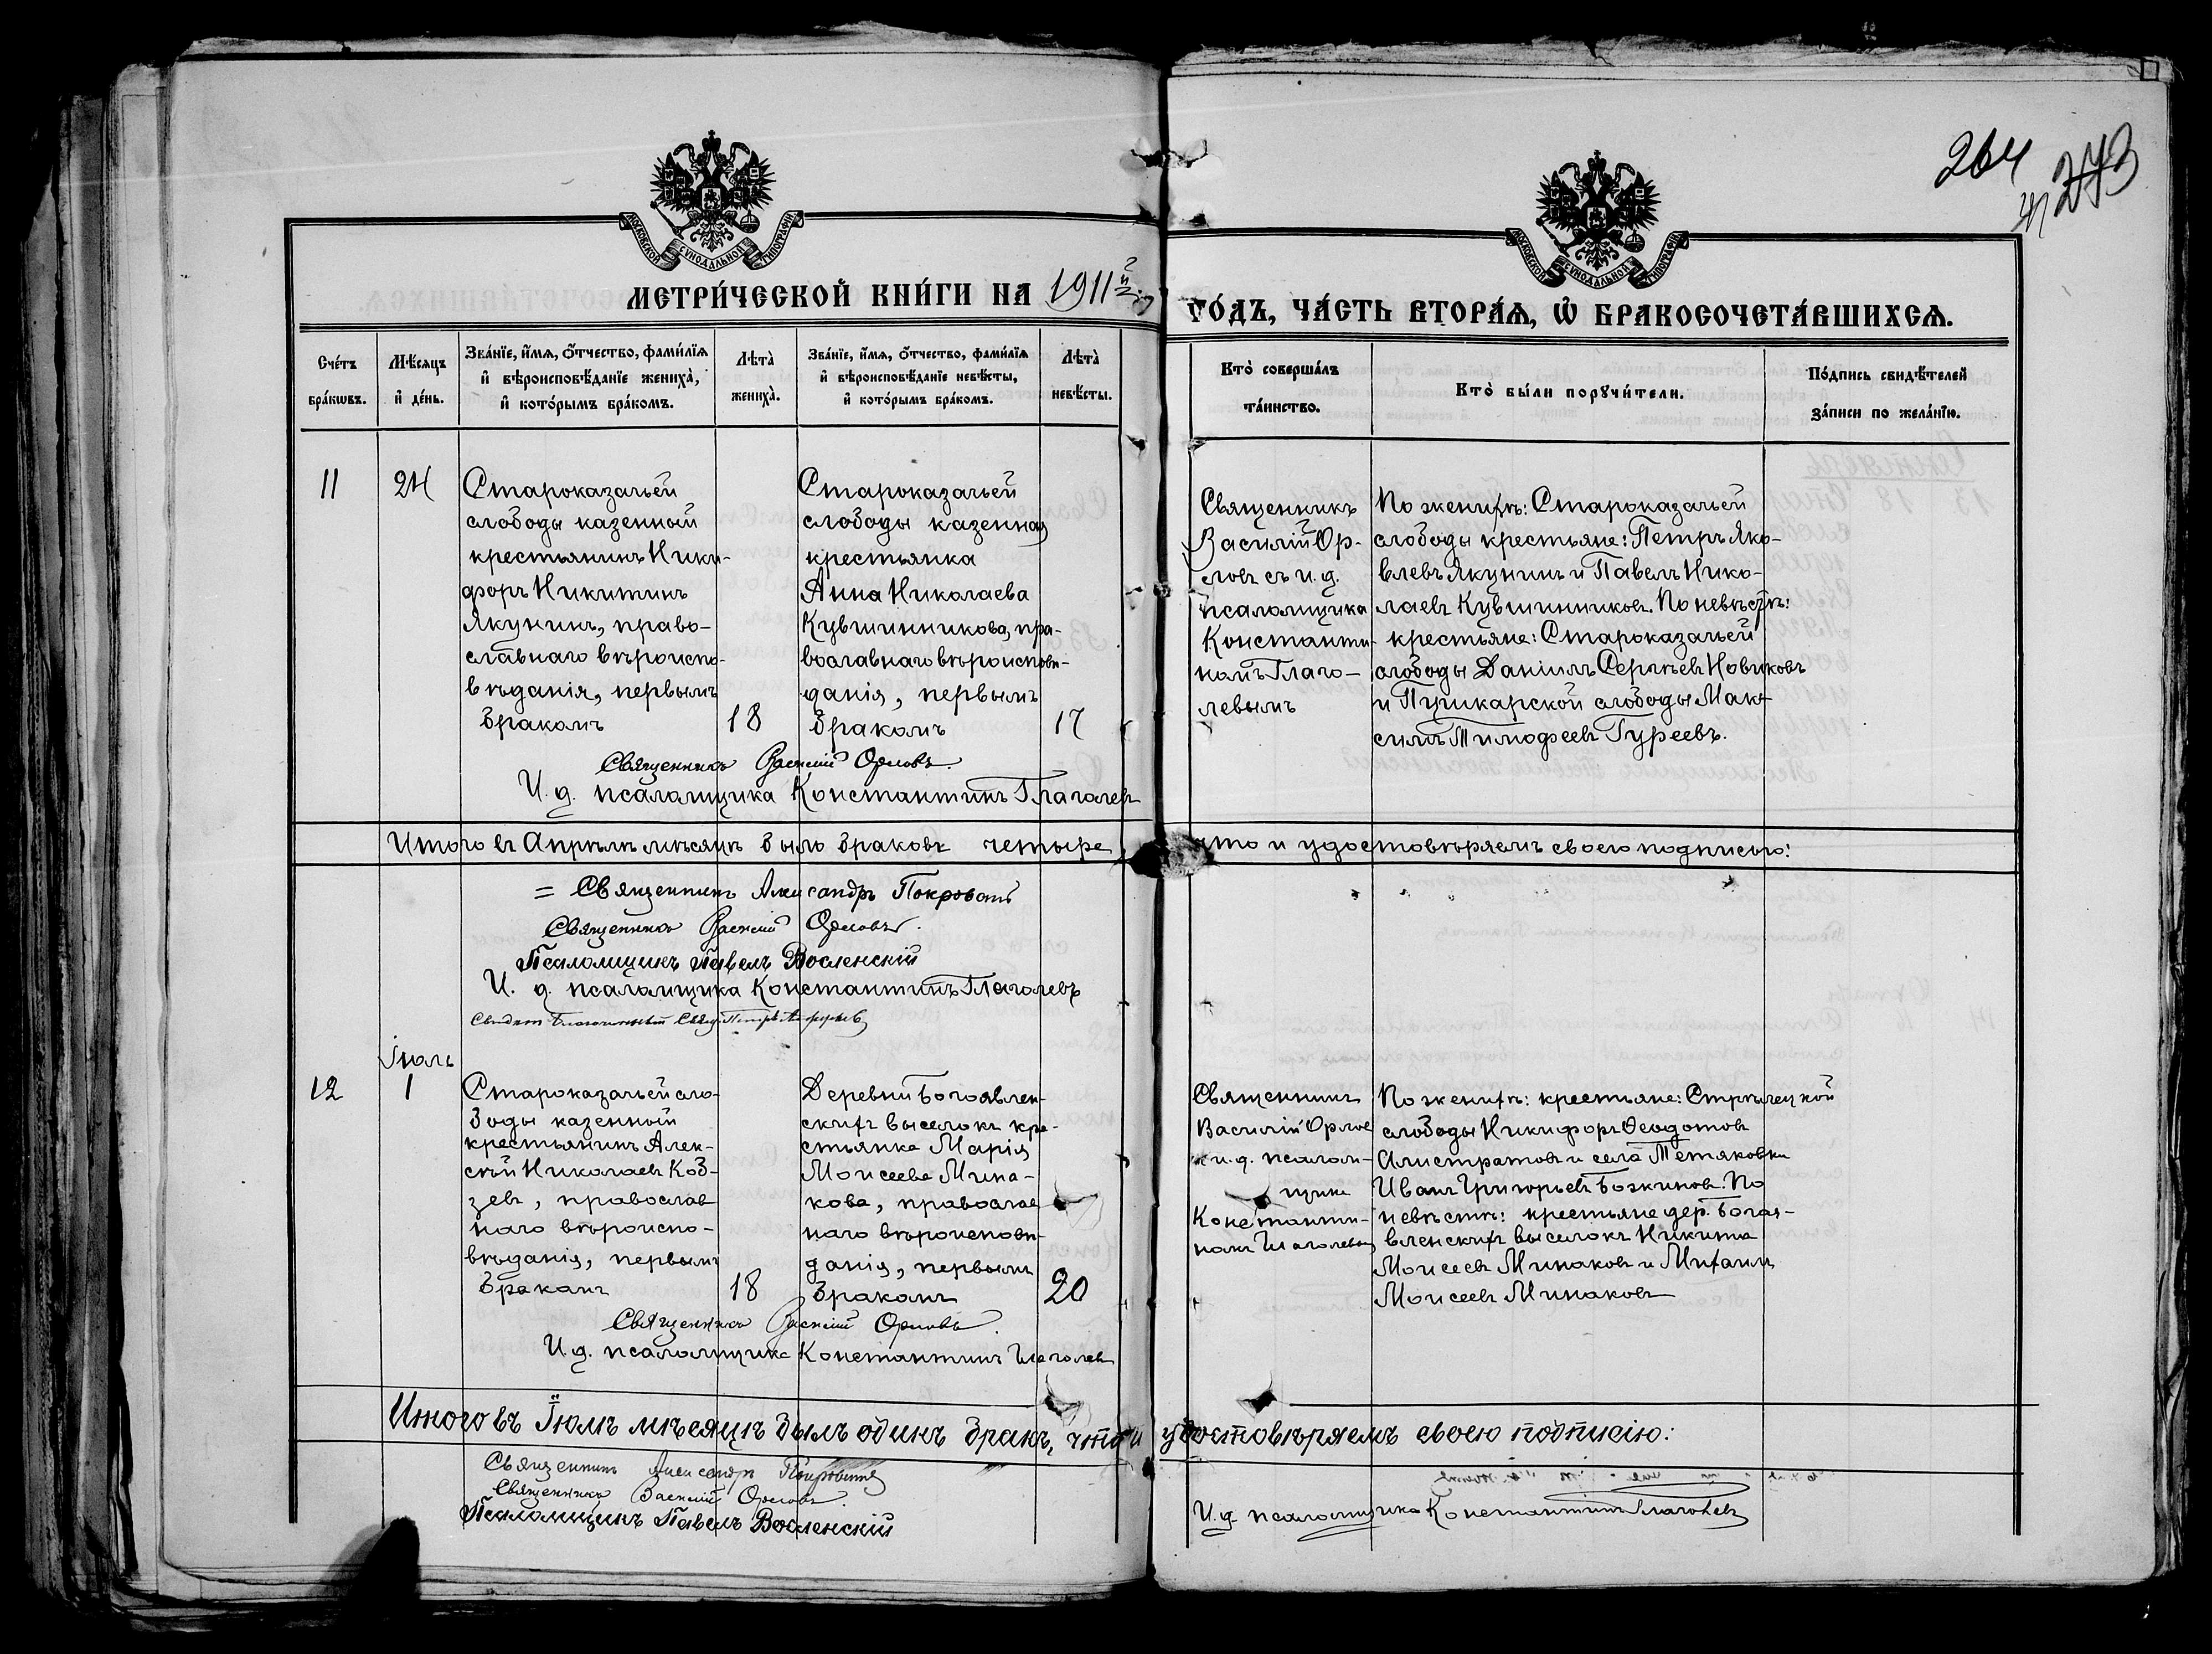 264
273
МОСКОВСКОЙ СѴНОДАЛЬНОЙ ТИПОГРАФІИ
МОСКОВСКОЙ СѴНОДАЛЬНОЙ ТИПОГРАФІИ
МЕТРИ́ЧЕСКОЙ КНИ́ГИ НА 1911й
ГО́ДЪ, ЧА́СТЬ ВТОРА́Ѧ, Ѡ҆ БРАКОСОЧЕТА́ВШИХСѦ.
Сче́тъ бра́кѡвъ.
Мѣ́сяцъ и҆ де́нь.
Зва́нїе, и҆́мѧ, ѻ҆́тчество, фами́лїѧ
и҆ вѣроисповѣ́данїе женихà,
и҆ кото́рымъ бра́комъ.
Лѣта̀ женихà.
Зва́нїе, и҆́мѧ, ѻ҆́тчество, фами́лїѧ
и҆ вѣроисповѣ́данїе невѣ́сты,
и҆ кото́рымъ бра́комъ.
Лѣта̀ невѣ́сты.
Кто̀ соверша́лъ
та́инство.
Кто̀ бы́ли порꙋчи́тели.
По́дпись свидѣ́телей
за́писи по жела́нїю.
11
24
Староказачьей
слободы казенный
крестьянинъ Ники-
форъ Никитинъ
Якунинъ, право-
славнаго вѣроиспо-
вѣданія, первымъ
бракомъ
18
Староказачьей
слободы казенная
крестьянка
Анна Николаева
Кувшинникова, пра-
вославнаго вѣроисповѣ-
данія, первымъ
бракомъ
17
Священникъ
Василій Ор-
ловъ съ и. д.
псаломщика
Константи-
номъ Глаго-
левымъ
По женихѣ: Староказачьей
слободы крестьяне: Петръ Яко-
влевъ Якунинъ и Павелъ Нико-
лаевъ Кувшинниковъ. По невѣстѣ:
крестьяне: Староказачьей
слободы Даніилъ Сергѣевъ Новиковъ
и Пушкарской слободы Мак-
симъ Тимофеевъ Гуреевъ.
Священникъ Василій Орловъ.
И. д. псаломщика Константинъ Глаголевъ
Итого въ Апрѣлѣ мѣсяцѣ было браковъ четыре что и удостовѣряемъ своею подписью:
= Священникъ Александръ Покровскій
Священникъ Василій Орловъ.
Псаломщикъ Павелъ Воленскій
И. д. псаломщика Константинъ Глаголевъ
Благочинный Свящ. Петръ
Іюль
12
1
Староказачьей сло-
боды казенный
крестьянинъ Алек-
сѣй Николаевъ Коб-
зевъ, православ
наго вѣроиспо-
вѣданія, первымъ
бракомъ
18
Деревни Богоявлен-
скихъ выселокъ кре-
стьянка Марія
Моисеева Мина-
кова, православ
наго вѣроисповѣ-
данія, первымъ
бракомъ
20
Священникъ
Василій Орловъ
и. д. псалом-
щика
Константи-
номъ Глаголевымъ
По женихѣ: крестьяне: Стрѣлецкой
слободы Никифоръ Ѳеодотовъ
Алистратовъ и села Тетяковки
Иванъ Григорьевъ Божкиновъ. По
невѣстѣ: крестьяне дер. Богоя-
вленскихъ выселокъ Никита
Моисеевъ Минаковъ и Михаилъ
Моисеевъ Минаковъ
Священникъ Василій Орловъ.
И. д. псаломщика Константинъ Глаголевъ
Итого въ Іюлѣ мѣсяцѣ былъ одинъ бракъ, что и удостовѣряемъ своею подписію:
Священникъ Александръ Покровскій
Священникъ Василій Орловъ.
Псаломщикъ Павелъ Воленскій
И. д. псаломщика Константинъ Глаголевъ